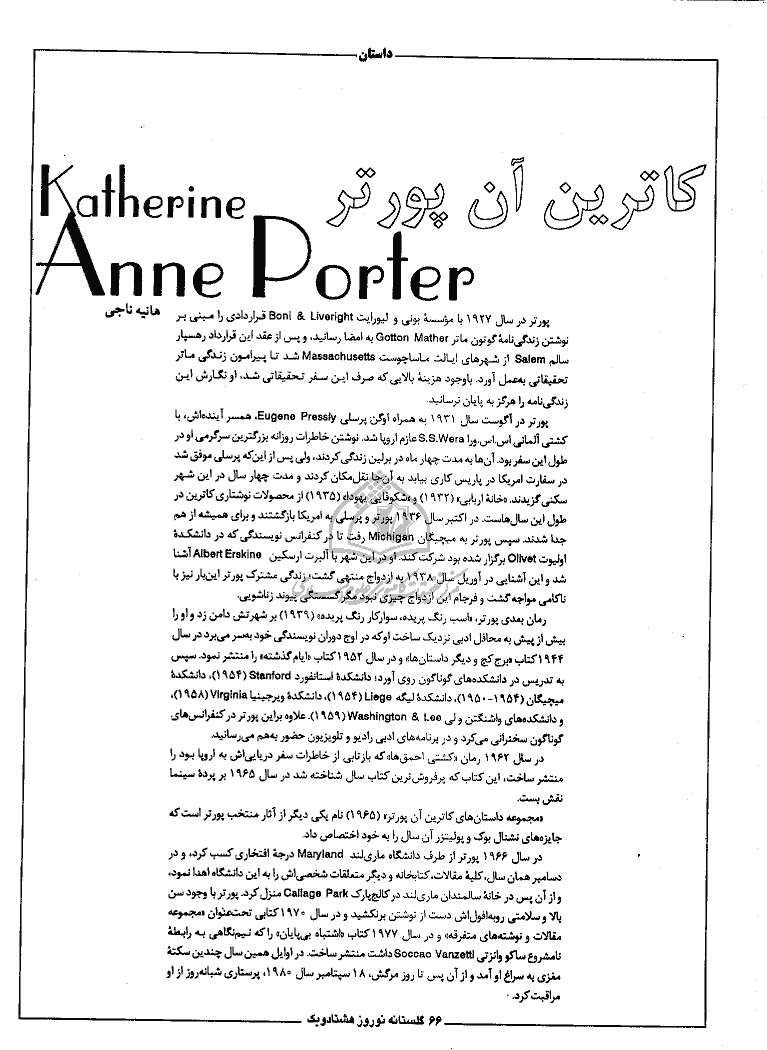 داستان
کاترین آن پورتر
Katherine
Anne Porter
هانیه ناجی
پورتر در سال ۱۹۲۷ با مؤسسهٔ بونی و لیورایت Boni & Liveright قراردادی را مبنی بر
نوشتن زندگی‌نامهٔ گوتون ماتر Gotton Mather به امضا رسانید، و پس از عقد این قرارداد رهسپار
سالم Salem از شهرهای ایالت ماساچوست Massachusetts شد تا پیرامون زندگی ماتر
تحقیقاتی به‌عمل آورد. باوجود هزینهٔ بالایی که صرف این سفر تحقیقاتی شد، او نگارش این
زندگی‌نامه را هرگز به پایان نرسانید.
پورتر در آگوست سال ۱۹۳۱ به همراه اوگن پرسلی Eugene Pressly، همسر آینده‌اش، با
کشتی آلمانی اس.اس.ورا S.S.Wera عازم اروپا شد. نوشتن خاطرات روزانه بزرگترین سرگرمی او در
طول این سفر بود. آن‌ها به مدت چهار ماه در برلین زندگی کردند، ولی پس از این‌که پرسلی موفق شد
در سفارت امریکا در پاریس کاری بیابد به آن‌جا نقل‌مکان کردند و مدت چهار سال در این شهر
سکنی گزیدند. «خانهٔ اربابی» (۱۹۳۲) و «شکوفایی یهودا» (۱۹۳۵) از محصولات نوشتاری کاترین در
طول این سال‌هاست. در اکتبر سال ۱۹۳۶ پورتر و پرسلی به امریکا بازگشتند و برای همیشه از هم
جدا شدند. سپس پورتر به میچیگان Michigan رفت تا در کنفرانس نویسندگی که در دانشکدهٔ
اولیوت Olivet برگزار شده بود شرکت کند. او در این شهر با آلبرت ارسکین Albert Erskine آشنا
شد و این آشنایی در آوریل سال ۱۹۳۸ به ازدواج منتهی گشت؛ زندگی مشترک پورتر این‌بار نیز با
ناکامی مواجه گشت و فرجام این ازدواج چیزی نبود مگر گسستگی پیوند زناشویی.
رمان بعدی پورتر، «اسب رنگ پریده، سوارکار رنگ پریده» (۱۹۳۹) بر شهرتش دامن زد و او را
بیش از پیش به محافل ادبی نزدیک ساخت او که در اوج دوران نویسندگی خود به‌سر می‌برد در سال
۱۹۴۴ کتاب «برج کج و دیگر داستان‌ها» و در سال ۱۹۵۲ کتاب «ایام گذشته» را منتشر نمود. سپس
به تدریس در دانشکده‌های گوناگون روی آورد؛ دانشکدهٔ استانفورد Stanford (۱۹۵۴)، دانشکدهٔ
میچیگان (۱۹۵۴-۱۹۵۰)، دانشکدهٔ لیگه Liege (۱۹۵۴)، دانشکدهٔ ویرجینیا Virginia (۱۹۵۸)،
و دانشکده‌های واشنگتن و لی Washington & Lee (۱۹۵۹). علاوه براین پورتر در کنفرانس‌های
گوناگون سخنرانی می‌کرد و در برنامه‌های ادبی رادیو و تلویزیون حضور به‌هم می‌رسانید.
در سال ۱۹۶۲ رمان «کشتی احمق‌ها» که بازتابی از خاطرات سفر دریایی‌اش به اروپا بود را
منتشر ساخت، این کتاب که پرفروش‌ترین کتاب سال شناخته شد در سال ۱۹۶۵ بر پردهٔ سینما
نقش بست.
«مجموعه داستان‌های کاترین آن پورتر» (۱۹۶۵) نام یکی دیگر از آثار منتخب پورتر است که
جایزه‌های نشنال بوک و پولیتزر آن سال را به خود اختصاص داد.
در سال ۱۹۶۶ پورتر از طرف دانشگاه ماری‌لند Maryland درجهٔ افتخاری کسب کرد، و در
دسامبر همان سال، کلیهٔ مقالات، کتابخانه و دیگر متعلقات شخصی‌اش را به این دانشگاه اهدا نمود،
و از آن پس در خانهٔ سالمندان ماری‌لند در کالج‌پارک Callage Park منزل کرد. پورتر با وجود سن
بالا و سلامتی روبه‌افول‌اش دست از نوشتن برنکشید و در سال ۱۹۷۰ کتابی تحت‌عنوان «مجموعه
مقالات و نوشته‌های متفرقه» و در سال ۱۹۷۷ کتاب «اشتباه بی‌پایان» را که نیم‌نگاهی به رابطهٔ
نامشروع ساکو وانزتی Soccao Vanzetti داشت منتشر ساخت. در اوایل همین سال چندین سکتهٔ
مغزی به سراغ او آمد و از آن پس تا روز مرگش، ۱۸ سپتامبر سال ۱۹۸۰، پرستاری شبانه‌روز از او
مراقبت کرد.
۶۶ گلستانه نوروز هشتادویک